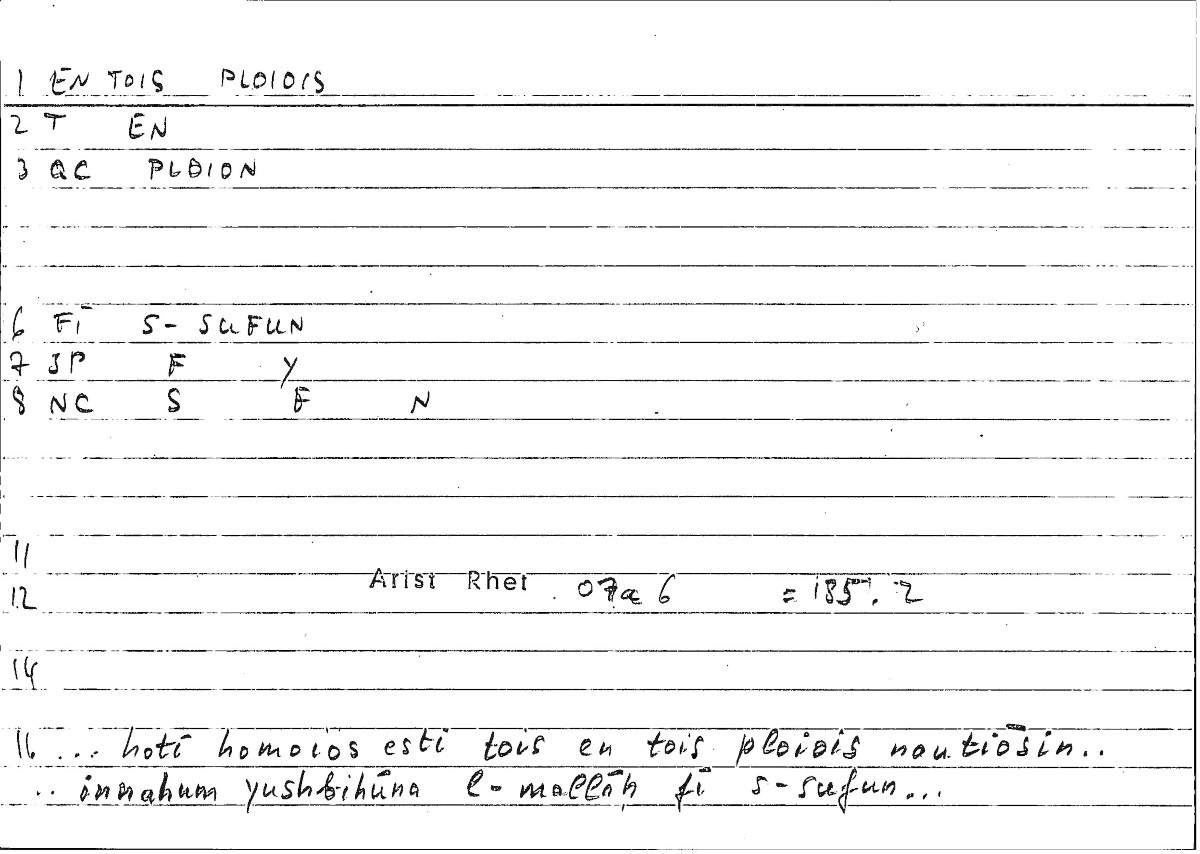 1 EN TOIS PLOIOIS
2 T EN
3 QC PLOION
6 FĪ S- SUFUN
7 3P F Y
8 NC S F N
11
12 Arist Rhet 07a 6 = 185. 2
14
16 ... hoti homoios esti tois en tois ploiois nautiōsin..
.. innahum yushbihūna l-mallāḥ fī s-sufun...